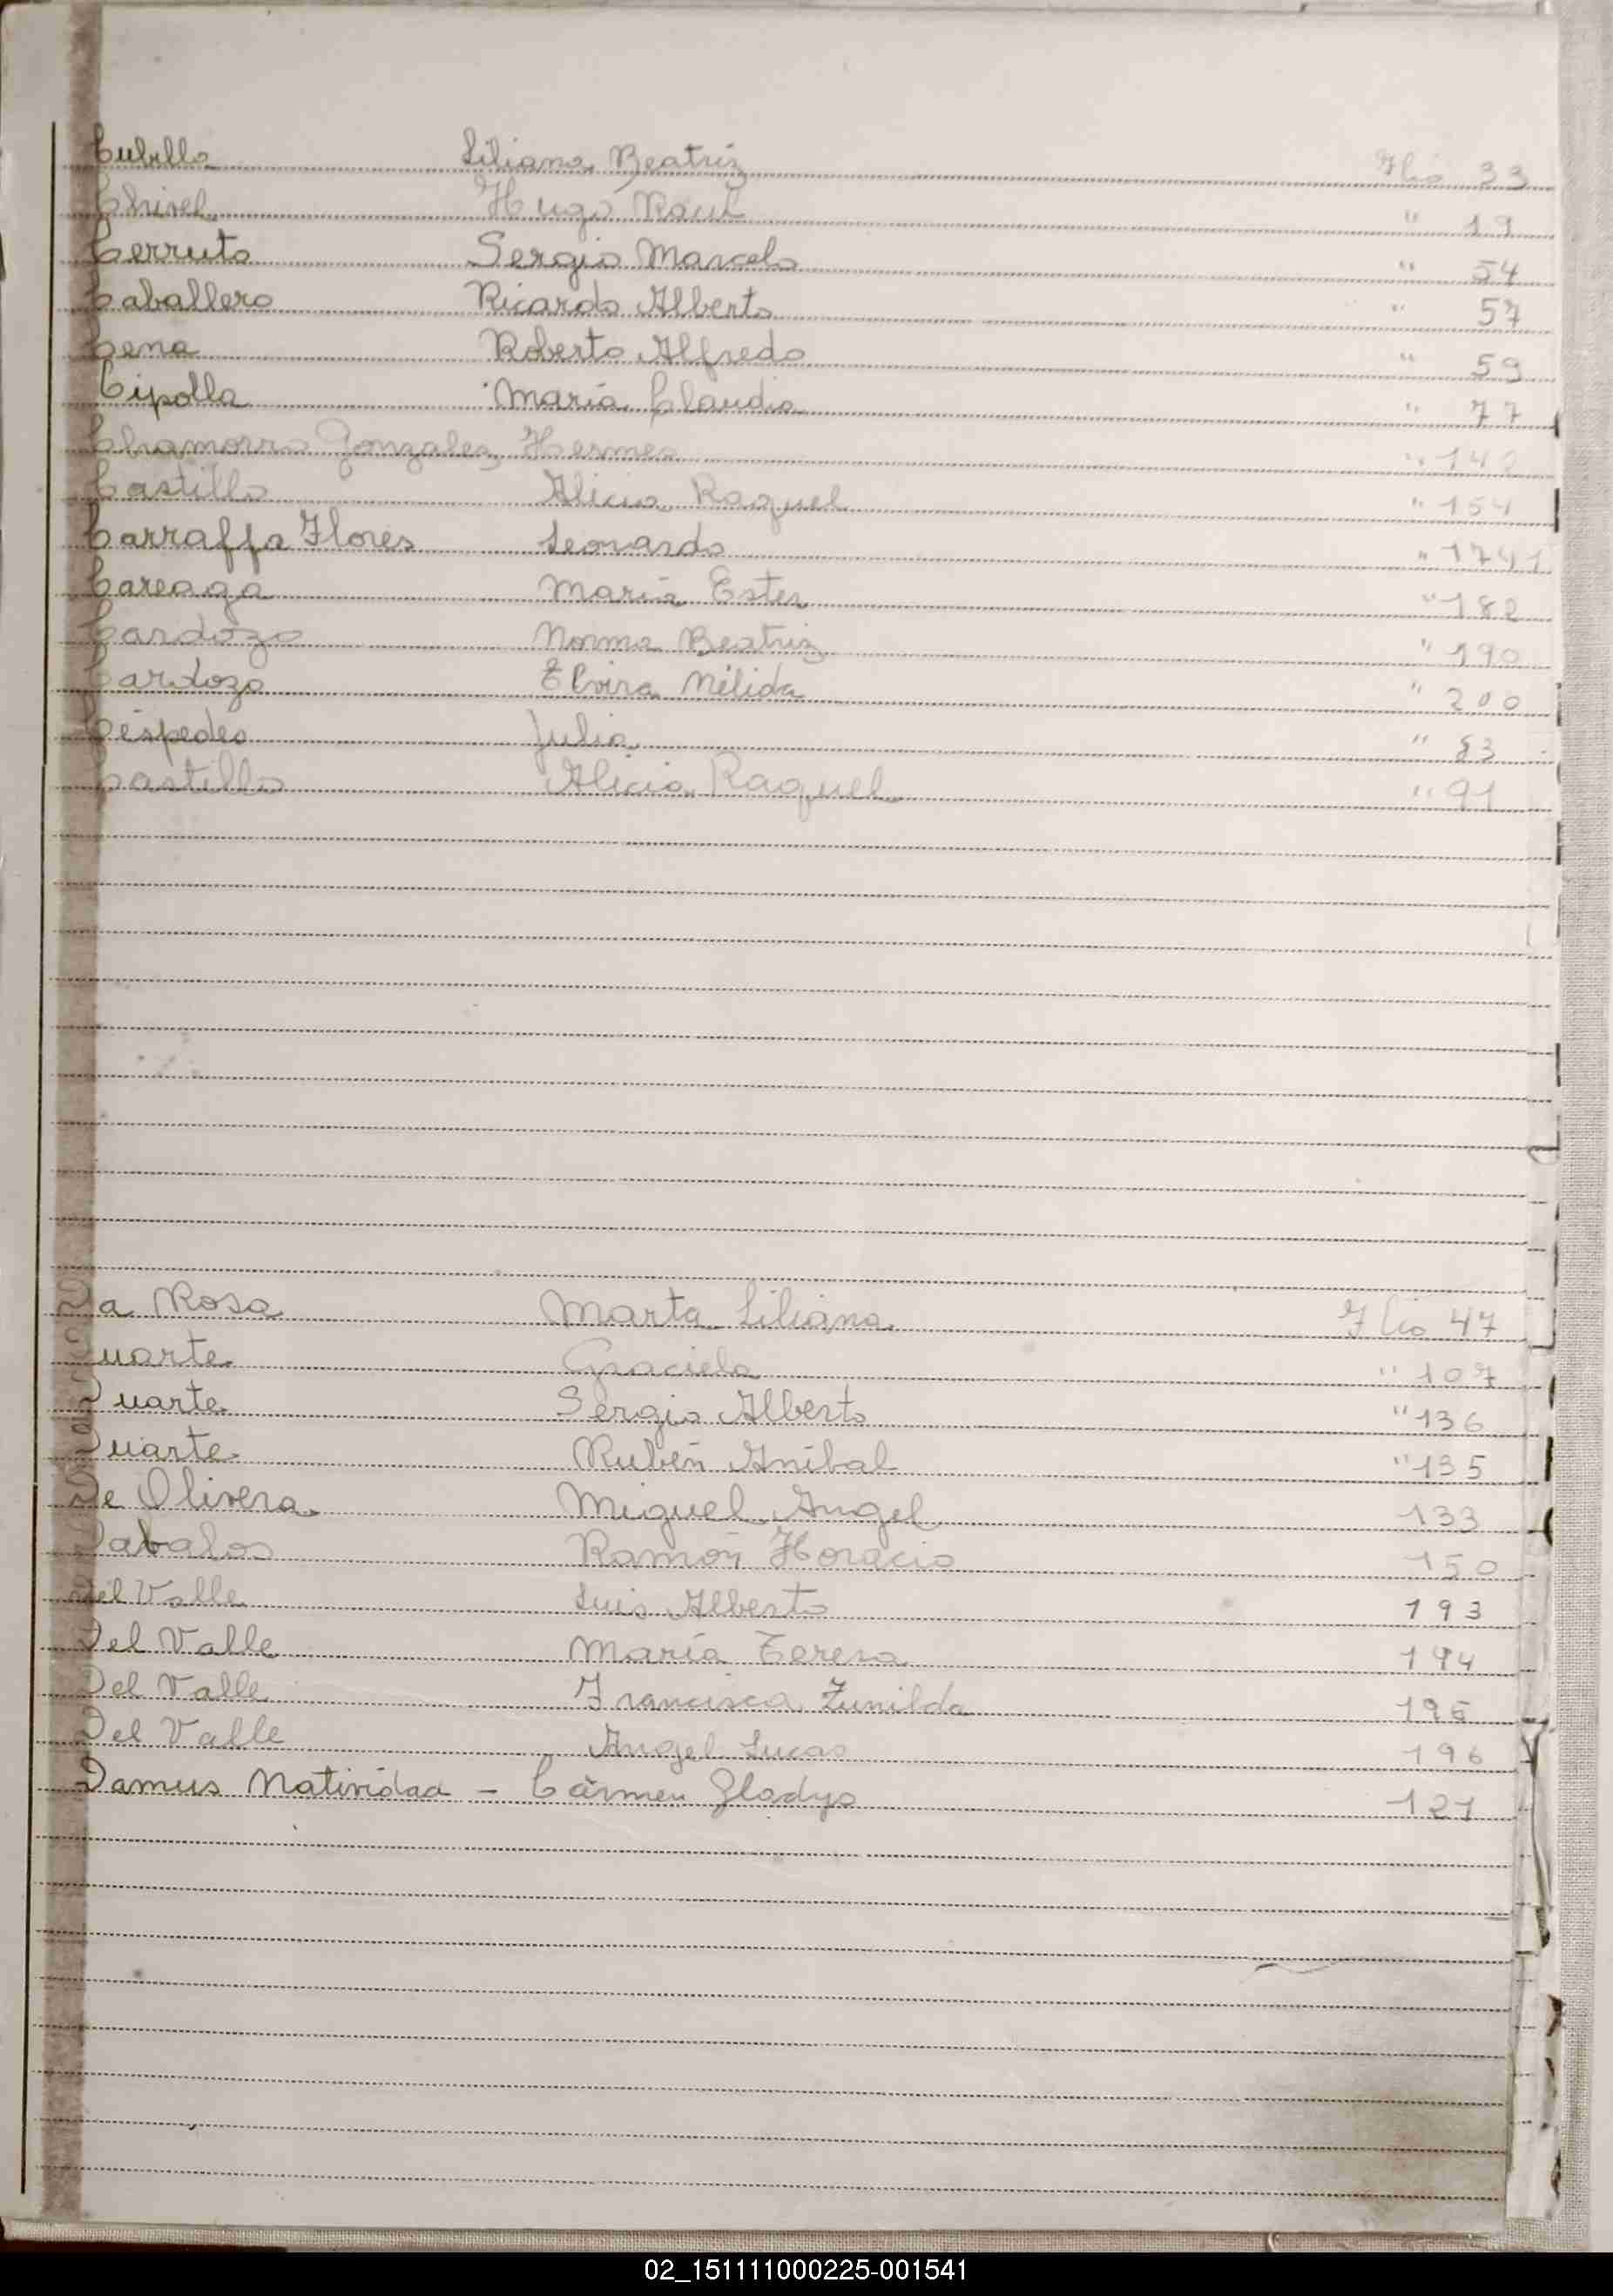 Cubilla Liliana Beatriz Flio 33
Chivel Hugo Raul " 19
Cerruto Sergio Marcelo " 54
Caballero Ricardo Alberto " 57
Cena Roberto Alfredo " 59
Cipolla María Claudia " 77
Chamorro Gonzalez Hermes "
Castillo Alicia Raquel " 154
Carraffa Flores Leonardo "
Careaga María Ester " 182
Cardozo Norma Beatriz " 190
Cardozo Elvira Nélida " 200
Céspedes Julia " 83
Castillo Alicia Raquel " 91
Da Rosa Marta Liliana Flio 47
Duarte Graciela " 107
Duarte Sergio Alberto " 136
Duarte Rubén Anibal " 135
De Olivera Miguel Angel 133
Dabalos Ramón Horacio 150
Del Valle Luis Alberto 193
Del Valle María Teresa 194
Del Valle Francisca Zunilda 195
Del Valle Angel Lucas 196
Damus Natividad - Cármen Gladys 121
02_151111000225-001541